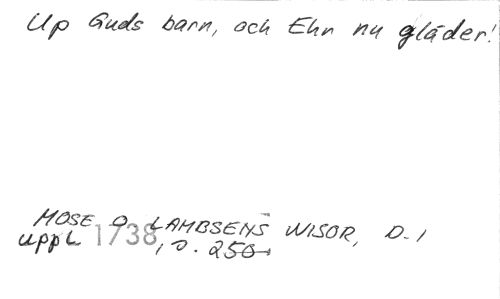 Up Guds barn, och Ehr nu gläder!
MOSE O LAMBSENS WISOR, D. 1
uppl 1738, s. 250